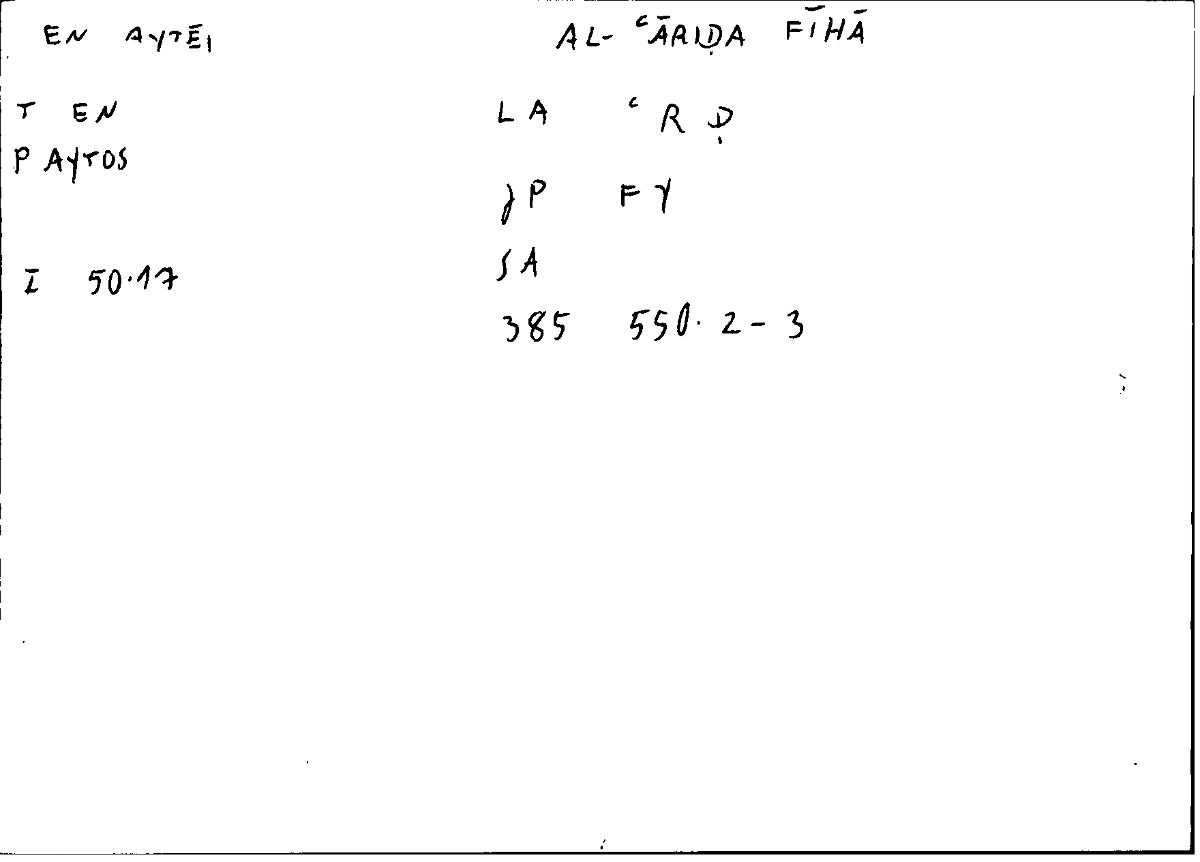 EN AYTĒI AL-ʿĀRIḌA FĪHĀ
T EN LA ʿRḌ
P AYTOS
JP FY
SA
I 50.17
385 550.2-3